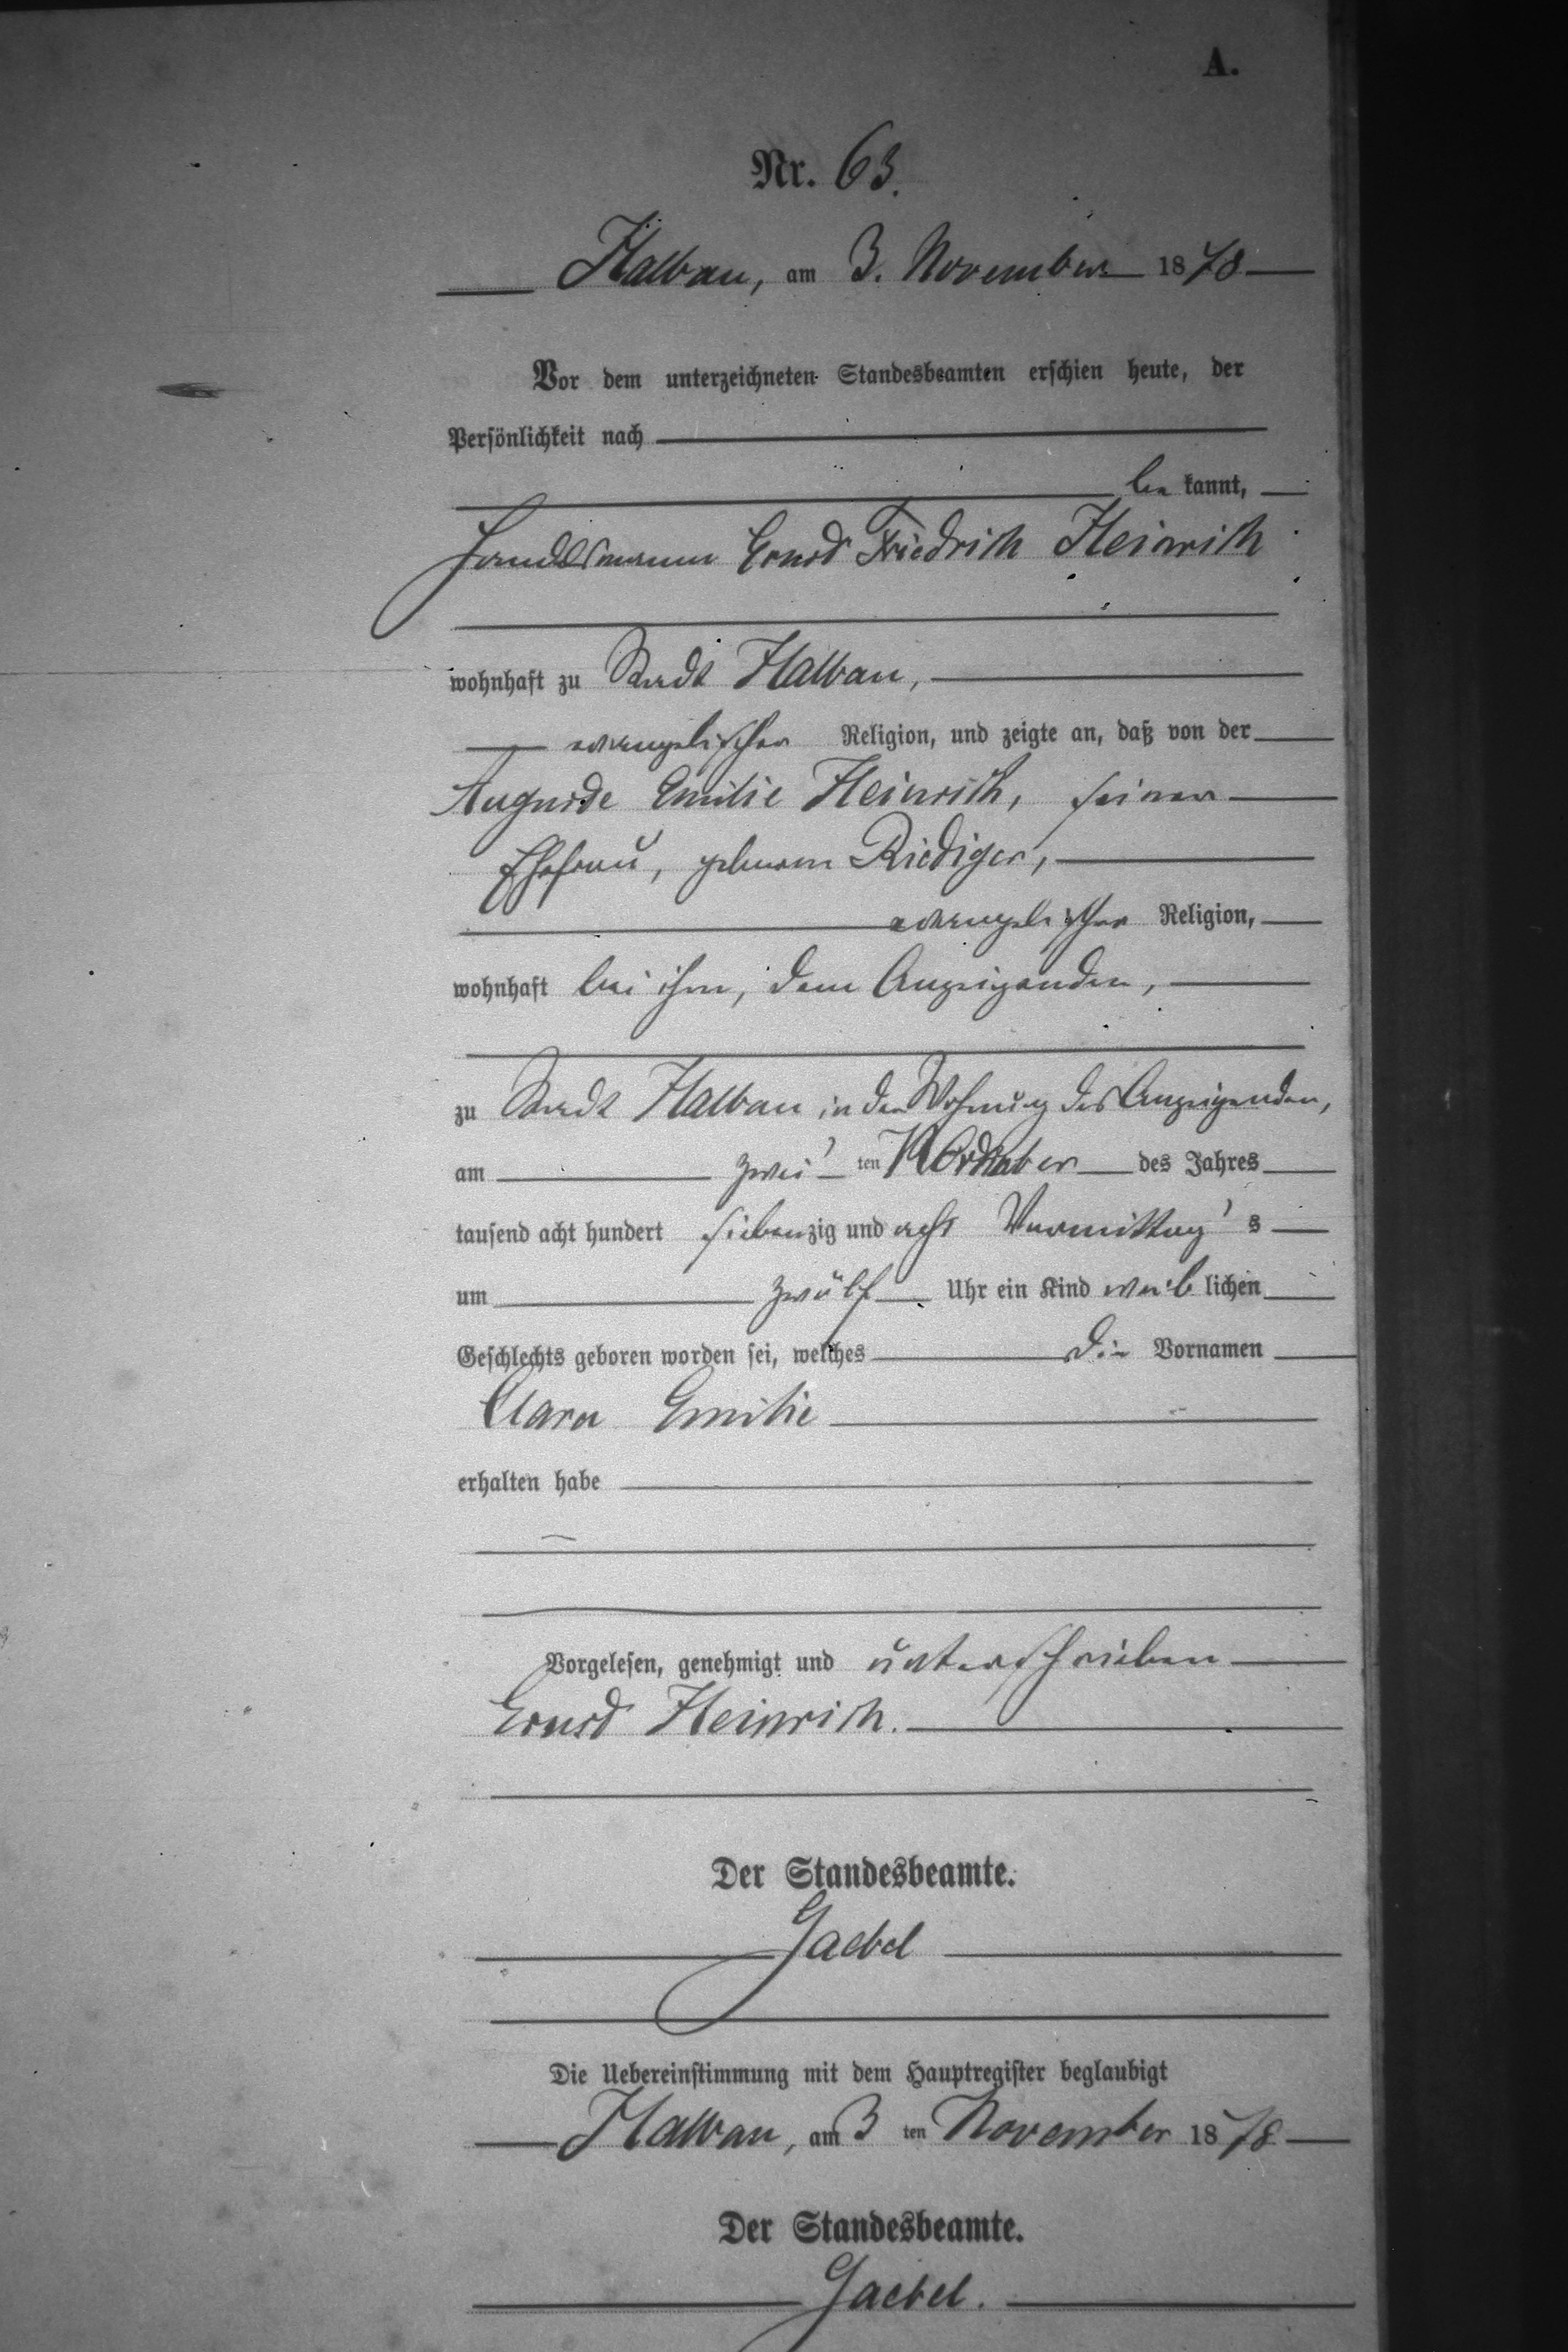 A.
Nr. 63.
Halbau, am 3. November 1878
Vor dem unterzeichneten Standesbeamten erschien heute, der
Persönlichkeit nach
be kannt,
Handelsmann Ernst Friedrich Heinrich
wohnhaft zu Stadt Halbau,
evangelischer Religion, und zeigte an, daß von der
Auguste Emilie Heinrich, seiner
Ehefrau, geborene Riediger,
evangelischer Religion,
wohnhaft bei ihm, dem Anzeigenden,
zu Stadt Halbau in der Wohnung des Anzeigenden,
am zwei ten November des Jahres
tausend acht hundert siebenzig und acht Vormittag s
um zwölf Uhr ein Kind weib lichen
Geschlechts geboren worden sei, welches die Vornamen
Clara Emilie
erhalten habe
Vorgelesen, genehmigt und unterschrieben
Ernst Heinrich.
Der Standesbeamte.
Gaebel
Die Uebereinstimmung mit dem Hauptregister beglaubigt
Halbau, am 3 ten November 1878
Der Standesbeamte.
Gaebel.